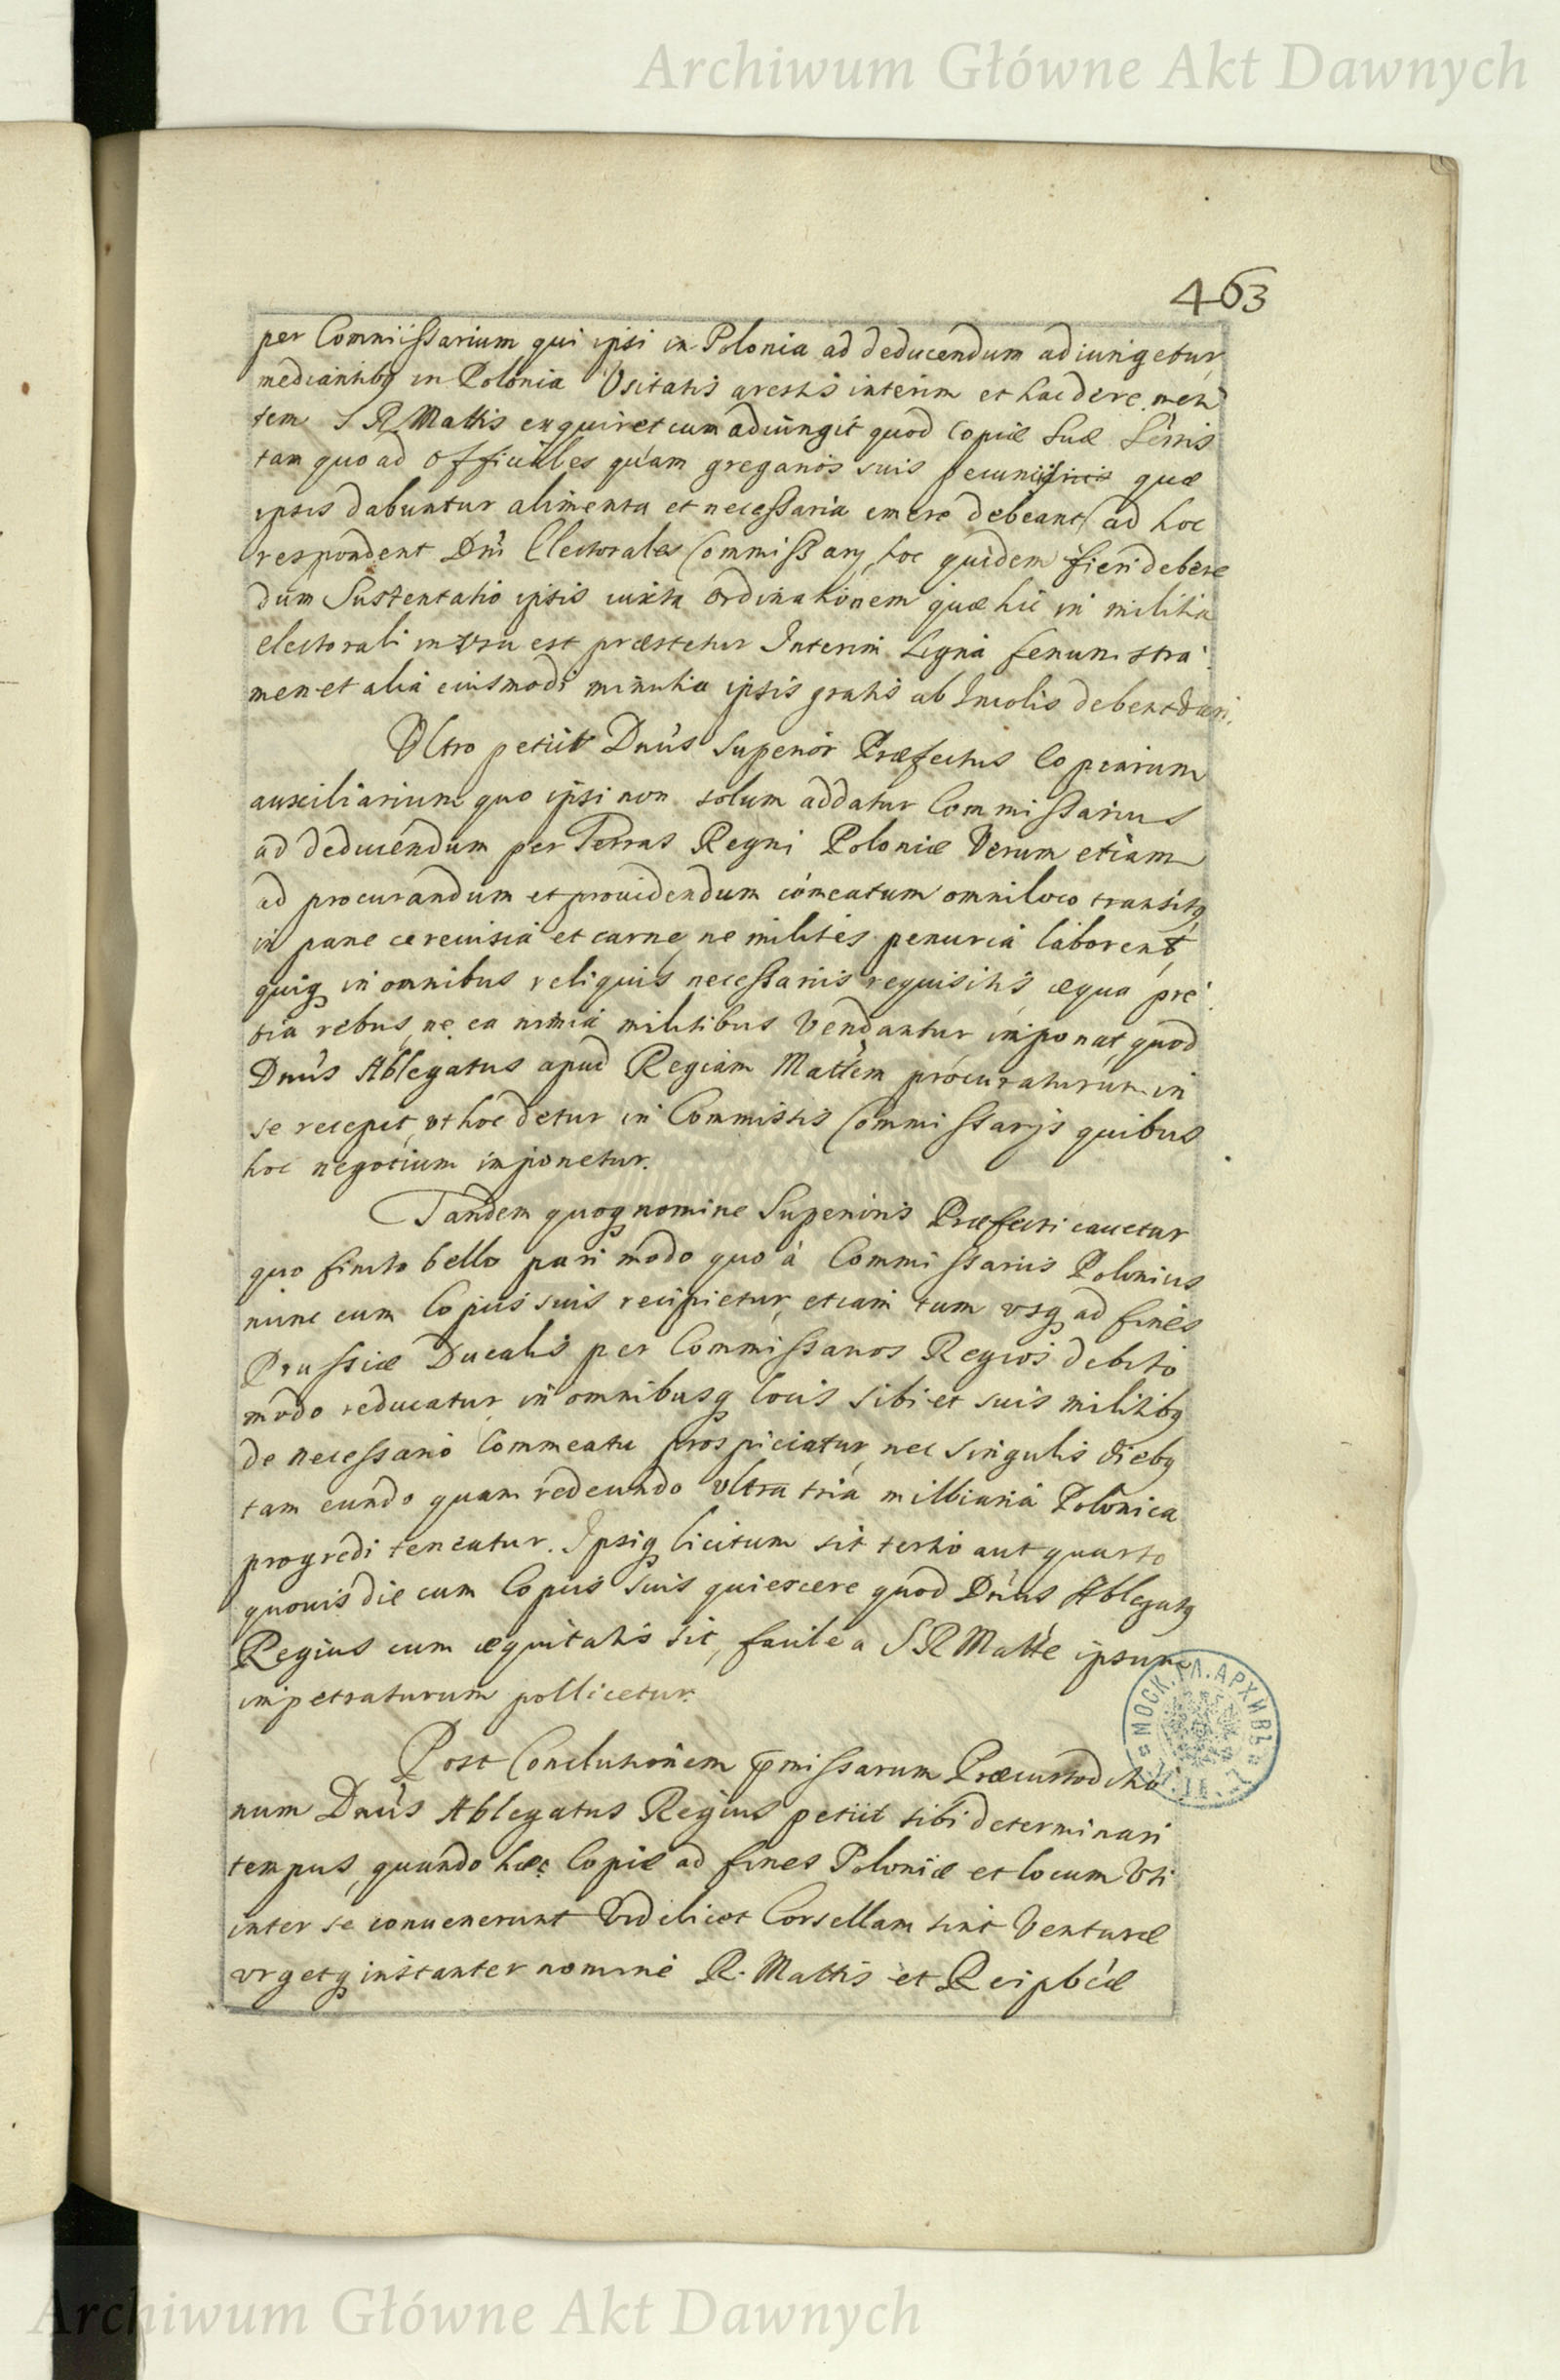 Archiwum Główne Akt Dawnych
463
per Commissarium qui ipsi in Polonia ad deducendum adiungetur,
mediantibq in Polonia Usitatis arestis interim et hac de re men
tem S R Mattis exquiret cum adiungit quod Copiæ Suæ
tam quo ad Officiales quam gregarios suis pecuniis quæ
ipsis dabuntur alimenta et necessaria emere debeant, ad hoc
respondent Dni Electorales Commissarij, hoc quidem fieri debere
dum Sustentatio ipsis iuxta Ordinationem quæ hic in militia
electorali in usu est præstetur Interim Ligna fenum stra
men et alia eiusmodi minutia ipsis gratis ab Incolis debent dari.
Ultro petiit Dnus Superior Præfectus Copiarum
auxiliarium quo ipsi non solum addatur Commissarius
ad deducendum per Terras Regni Poloniæ Verum etiam
ad procurandum et prouidendum comeatum omni loco transitq
in pane cereuisia et carne, ne milites penuria laborent,
quiq in omnibus reliquis necessariis requisitis æqua pre
tia rebus, ne ea nimia militibus Vendantur imponat, quod
Dnus Ablegatus apud Regiam Mattem procuraturum in
se recepit, ut hoc detur in Commissis Commissarijs quibus
hoc negotium imponetur.
Tandem quoq nomine Superioris Præfecti cauetur
quo finito bello pari modo quo à Commissariis Polonius
nunc cum Copiis suis recipietur, etiam tum usq ad fines
Prussiæ Ducalis per Commissarios Regios debito
modo reducatur, in omnibusq locis sibi et suis militibq
de necessario Commeatu prospiciatur, nec singulis diebq
tam eundo quam redeundo ultra tria milliaria Polonica
progredi teneatur. Ipsiq licitum sit tertio aut quarto
quouis die cum Copiis suis quiescere quod Dnus Ablegatq
Regius cum æquitatis sit, facile a S R Matte ipsum
impetraturum pollicetur.
Post Conclusionem pmissarum Præcustoditio
num Dnus Ablegatus Regius petiit sibi determinari
tempus, quando hæc Copiæ ad fines Poloniæ et locum Uti
inter se conuenerunt Videlicet Corsellam sint Venturæ
urgetq instanter nomine R. Mattis et Reipbcæ
МОСК. ГЛ. АРХИВЪ
Archiwum Główne Akt Dawnych